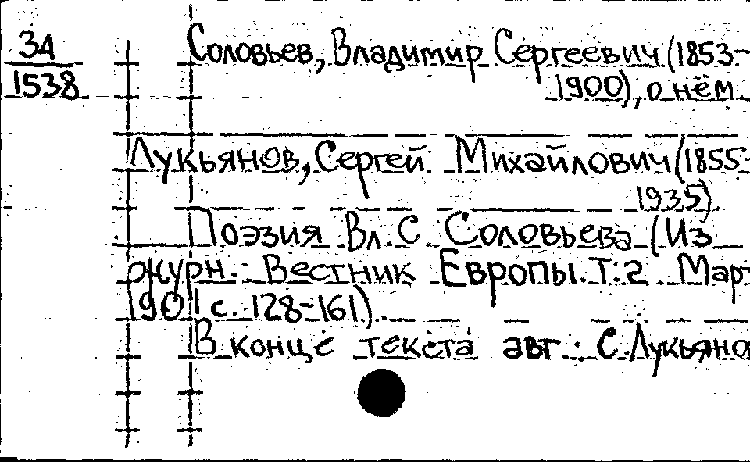 34
1538
Соловьев, Владимир Сергеевич (1853-
1900), о нём
Лукьянов, Сергей Михайлович (1855-
1935).
Поэзия Вл. С. Соловьева (Из
журн.: Вестник Европы. Т. 2 Март
1901 с. 128-161).
В конце текста авт.: С. Лукьяно